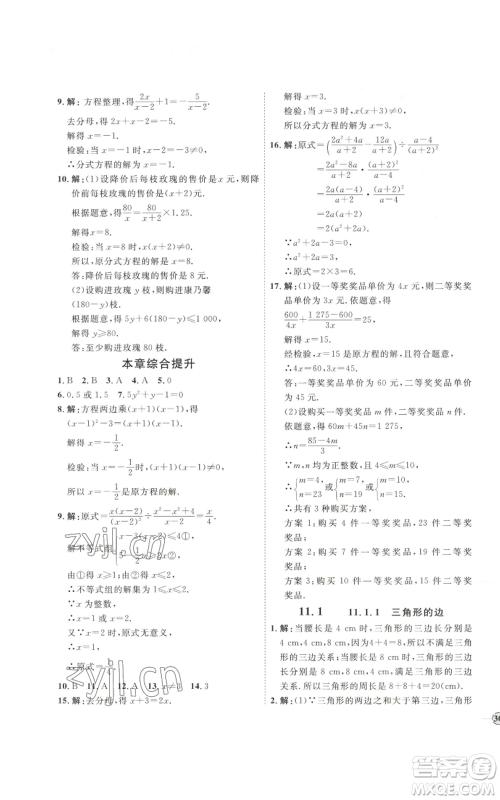 9. 解:方程整理,得2x/(x-2)+1=-5/(x-2).
去分母,得2x+x-2=-5.
解得x=-1.
检验:当x=-1时,x-2≠0,
∴分式方程的解为x=-1.
10. 解:(1)设降价后每枝玫瑰的售价是x元,则降
价前每枝玫瑰的售价是(x+2)元.
根据题意,得80/x=80/(x+2)×1.25.
解得x=8.
检验:当x=8时,x(x+2)≠0,
所以,原分式方程的解为x=8.
答:降价后每枝玫瑰的售价是8元.
(2)设购进玫瑰y枝,则购进康乃馨
(180-y)枝.
根据题意,得5y+6(180-y)≤1000.
解得y≥80.
答:至少购进玫瑰80枝.
本章综合提升
1. B 2. B 3. A 4. A 5. 0
6. 0.5或1.5 7. y²+y-1=0
8. 解:方程两边乘(x-1)²,得
(x-1)²-3(x-1)=0.
解得x=-1/2.
检验:当x=-1/2时,(x-1)²≠0.
所以,原方程的解为x=-1/2.
9. 解:原式=x(x-2)/(x-2)²÷
解不等式组
0≤x<2.
∴不等式组的解集为
∵x为整数,∴x=0或x=1.
当x=0时,原式无意义,
∴x=1,
∴原式=
10. B 11. A 12. A 14. x 14. 3
解得x=3.
检验:当x=3时,(x+1)(x-1)≠0.
所以分式方程的解为x=3.
16. 解:原式=((2a²+4a)/(a+2)-)÷(a-4)/(a+2)²
=(2a²-8a)/(a+2)·(a+2)²/(a-4)
=2a(a-4)/(a+2)·(a+2)²/(a-4)
=2a(a+2)
=2(a²+2a).
∵a²+2a-3=0,
∴a²+2a=3.
∴原式=2×3=6.
17. 解:(1)设一等奖奖品单价为4x元,则二等奖奖
品单价为3x元,根据题意,得
600/4x+(1 275-600)/3x=25,
解得x=15.
经检验,x=15是原方程的解.
答:一等奖奖品单价为60元,二等奖奖品单
价为45元.
(2)设购买一等奖奖品m件,二等奖奖品n件,
依题意,得60m+45n=1 275,
∴n=(85-4m)/3.
∵m,n均为正整数,且4≤m≤10,
∴{m=4, n=23, {m=7, n=19, {m=10, n=15.
∴共有3种购买方案,
方案1:购买4件一等奖奖品,23件二等奖
奖品;
方案2:购买7件一等奖奖品,19件二等奖
奖品;
方案3:购买10件一等奖奖品,15件二等奖
奖品.
11.1 11.1.1 三角形的边
1. 解:当腰长是4 cm时,三角形的三边长分别
是4 cm,4 cm,8 cm,因为4+4=8,不满足三
角形的三边关系.当腰长是8 cm时,三角形的
三边长分别是8 cm,8 cm,4 cm,满足三角形的
三边关系.所以三角形的周长是8+8+4=20(cm).
2. 解:(1)∵三角形的两边之和大于第三边,三角形
zyjl.cn
zyjl.cn